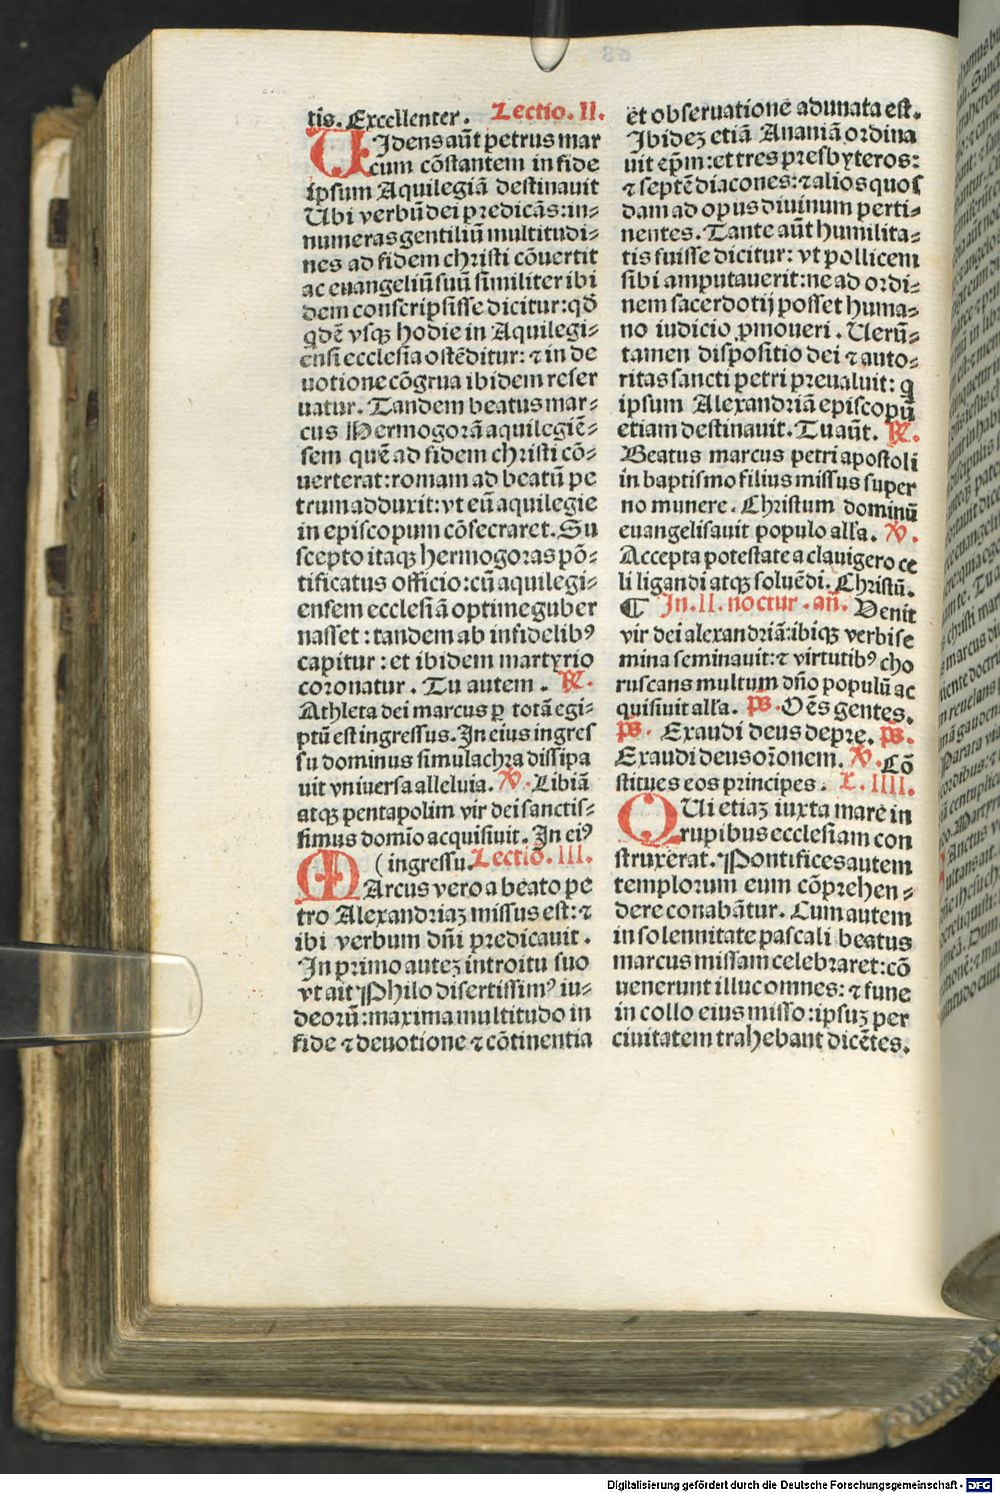 tis. Excellenter. Lectio. II.
UIdens aūt petrus mar
cum cōstantem in fide
ipsum Aquilegiā destinauit
Ubi verbū dei predicās: in⸗
numeras gentiliū multitudi⸗
nes ad fidem christi cōuertit
ac euangeliū suū similiter ibi
dem conscripsisse dicitur: qđ
q̇dē vsqꝫ hodie in Aquilegi⸗
ensi ecclesia ostēditur: ⁊ in de
uotione cōgrua ibidem reser
uatur. Tandem beatus mar⸗
cus Hermogorā aquilegiē⸗
sem quē ad fidem christi cō⸗
uerterat: romam ad beatū pe
trum adduxit: vt eū aquilegie
in episcopum cōsecraret. Su
scepto itaqꝫ hermogoras pō⸗
tificatus officio: cū aquilegi⸗
ensem ecclesiā optime guber
nasset: tandem ab infidelibꝰ
capitur: et ibidem martyrio
coronatur. Tu autem. ℟.
Athleta dei marcus ꝑ totā egi⸗
ptū est ingressus. In eius ingres
su dominus simulachra dissipa
uit vniuersa alleluia. ℣. Libiā
atqꝫ pentapolim vir dei sanctis⸗
simus domīo acquisiuit. In eiꝰ
( ingressu. Lectiō. III.
MArcus vero a beato pe
tro Alexandriaꝫ missus est: ⁊
ibi verbum dn̄i predicauit.
In primo auteꝫ introitu suo
vt ait Philo disertissimꝰ iu⸗
deorū: maxima multitudo in
fide ⁊ deuotione ⁊ cōtinentia
et obseruatione adunata est.
Ibideꝫ etiā Ananiā ordina
uit ep̄m: et tres presbyteros:
⁊ septē diacones: ⁊ alios quos
dam ad opus diuinum perti⸗
nentes. Tante aūt humilita⸗
tis fuisse dicitur: vt pollicem
sibi amputauerit: ne ad ordi⸗
nem sacerdotij posset huma⸗
no iudicio ꝓmoueri. Uerū⸗
tamen dispositio dei ⁊ auto⸗
ritas sancti petri preualuit: q
ipsum Alexandriā episcopū
etiam destinauit. Tu aūt. ℟.
Beatus marcus petri apostoli
in baptismo filius missus super
no munere. Christum dominū
euangelisauit populo all'a. ℣.
Accepta potestate a clauigero ce
li ligandi atqꝫ soluēdi. Christū.
¶ In. II. noctur. an̄. Uenit
vir dei alexandriā: ibiqꝫ verbi se
mina seminauit: ⁊ virtutibꝰ cho
ruscans multum dn̄o populū ac
quisiuit all'a. ps. Oēs gentes.
ps. Exaudi deus depre. ps.
Exaudi deus orōnem. ℣. Cō
stitues eos principes. L. IIII.
QUi etiaꝫ iuxta mare in
rupibus ecclesiam con
struxerat. Pontifices autem
templorum eum cōprehen⸗
dere conabātur. Cum autem
in solennitate pascali beatus
marcus missam celebraret: cō
uenerunt illuc omnes: ⁊ fune
in collo eius misso: ipsuꝫ per
ciuitatem trahebant dicētes.
Digitalisierung gefördert durch die Deutsche Forschungsgemeinschaft - DFG